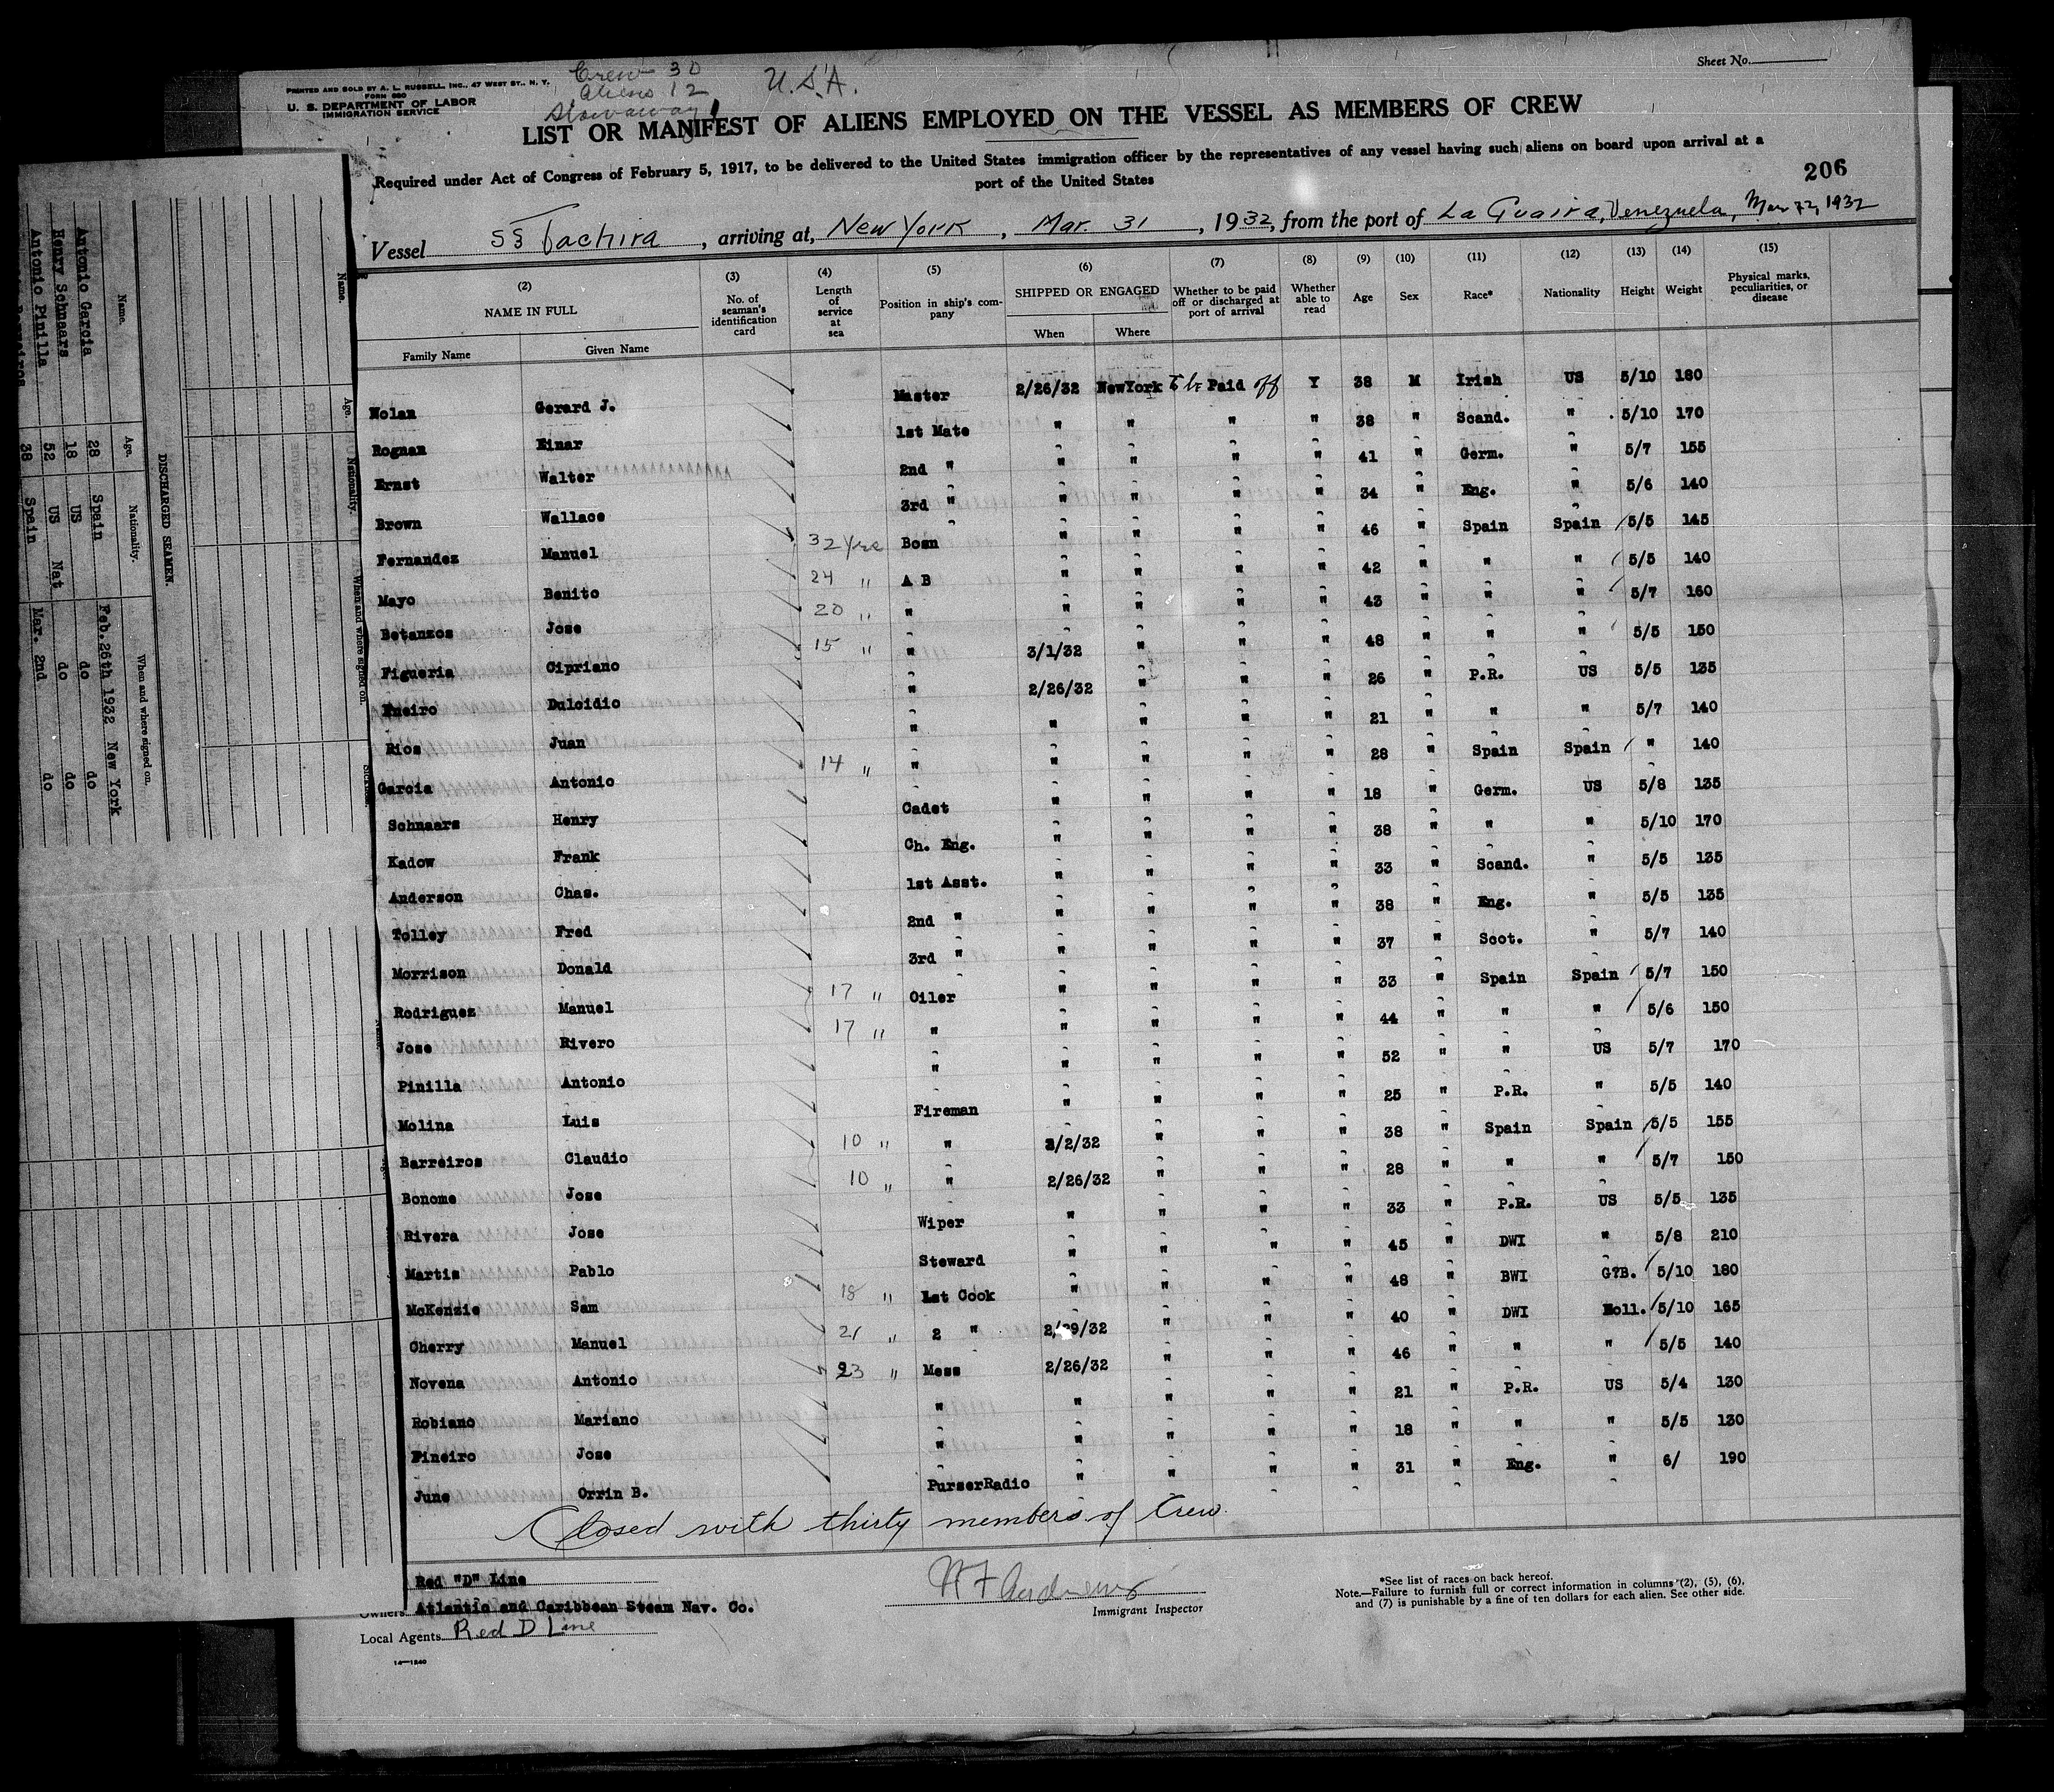 Sheet No.
PRINTED AND SOLD BY A. L. RUSSELL, INC., 47 WEST ST., N. Y.
FORM 680
U. S. DEPARTMENT OF LABOR
IMMIGRATION SERVICE
Crew 30
Aliens 12
Stowaway 1
U.S.A.
LIST OR MANIFEST OF ALIENS EMPLOYED ON THE VESSEL AS MEMBERS OF CREW
Required under Act of Congress of February 5, 1917, to be delivered to the United States immigration officer by the representatives of any vessel having such aliens on board upon arrival at a
port of the United States
206
Vessel SS Tachira, arriving at, New York, Mar. 31, 1932, from the port of La Guaira, Venezuela, Mar 1932
(2) NAME IN FULL Family Name Given Name (3) No. of seaman's identification card (4) Length of service at sea (5) Position in ship's company (6) SHIPPED OR ENGAGED When Where (7) Whether to be paid off or discharged at port of arrival (8) Whether able to read (9) Age (10) Sex (11) Race* (12) Nationality (13) Height (14) Weight (15) Physical marks, peculiarities, or disease
Nolan Gerard J. Master 2/26/32 NewYork To be Paid off Y 38 M Irish US 5/10 180
Rognan Einar 1st Mate " " " " 38 " Scand. " 5/10 170
Ernst Walter 2nd " " " " " 41 " Germ. " 5/7 155
Brown Wallace 3rd " " " " " 34 " Eng. " 5/6 140
Fernandez Manuel 32 yrs Bosn " " " " 46 " Spain Spain 5/5 145
Mayo Benito 24 " A B " " " " 42 " " " 5/5 140
Betanzos Jose 20 " " " " " " 43 " " " 5/7 160
Figueria Cipriano 15 " " 3/1/32 " " " 48 " " " 5/5 150
Pneiro Dulcidio " 2/26/32 " " " 26 " P.R. US 5/5 135
Rios Juan " " " " " 21 " " " 5/7 140
Garcia Antonio 14 " " " " " " 28 " Spain Spain " 140
Schnaars Henry Cadet " " " " 18 " Germ. US 5/8 135
Kadow Frank Ch. Eng. " " " " 38 " " " 5/10 170
Anderson Chas. 1st Asst. " " " " 33 " Scand. " 5/5 135
Tolley Fred 2nd " " " " " 38 " Eng. " 5/5 135
Morrison Donald 3rd " " " " " 37 " Scot. " 5/7 140
Rodriguez Manuel 17 " Oiler " " " " 33 " Spain Spain 5/7 150
Jose Rivero 17 " " " " " " 44 " " " 5/6 150
Pinilla Antonio " " " " " 52 " " US 5/7 170
Molina Luis Fireman " " " " 25 " P.R. " 5/5 140
Barreiros Claudio 10 " " 3/2/32 " " " 38 " Spain Spain 5/5 155
Bonome Jose 10 " " 2/26/32 " " " 28 " " " 5/7 150
Rivera Jose Wiper " " " " 33 " P.R. US 5/5 135
Martis Pablo Steward " " " " 45 " DWI " 5/8 210
McKenzie Sam 18 " 1st Cook " " " " 48 " BWI G?B. 5/10 180
Cherry Manuel 21 " 2 " 2/29/32 " " " 40 " DWI Holl. 5/10 165
Novena Antonio 23 " Mess 2/26/32 " " " 46 " " " 5/5 140
Robiano Mariano " " " " " 21 " P.R. US 5/4 130
Pineiro Jose " " " " " 18 " " " 5/5 130
June Orrin B. PurserRadio " " " " 31 " Eng. " 6/ 190
Closed with thirty members of Crew.
Red "D" Line
Owners Atlantic and Caribbean Steam Nav. Co.
Local Agents Red D Line
14—1240
Immigrant Inspector
*See list of races on back hereof.
Note.—Failure to furnish full or correct information in columns (2), (5), (6),
and (7) is punishable by a fine of ten dollars for each alien. See other side.
DISCHARGED SEAMEN.
Name. Age. Nationality. When and where signed on.
Antonio Garcia 28 Spain Feb.26th 1932 New York
Henry Schnaars 18 US do do
Antonio Pinilla 52 US Nat do do
38 Spain Mar. 2nd do
Name. Age. Nationality. When and where signed on.